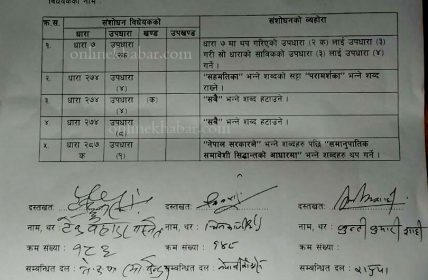 विधेयकको नाम :
क्र.स. संशोधन विधेयकको संशोधनको व्यहोरा
धारा उपधारा खण्ड उपखण्ड
१. धारा ७ उपधारा २क धारा ७ मा थप गरिएको उपधारा (२ क) लाई उपधारा (३)
गरी सो धाराको साविकको उपधारा (३) लाई उपधारा (४)
गर्ने ।
२. धारा २७४ उपधारा (४) "सहमतिका" भन्ने शब्दको सट्टा "परामर्शका" भन्ने शब्द
राख्ने ।
३. धारा २७४ उपधारा (४) (क) "सबै" भन्ने शब्द हटाउने ।
४ धारा २७४ उपधारा (८) "सबै" भन्ने शब्द हटाउने ।
५. धारा २८७ क उपधारा (१) "नेपाल सरकारले" भन्ने शब्दहरु पछि "समानुपातिक
समावेशी सिद्धान्तको आधारमा" भन्ने शब्दहरु थप गर्ने ।
onlinekhabar.com
onlinekhabar.com
दस्तखत: दस्तखत: दस्तखत:
नाम, थर: टेक बहादुर नाम, थर : नाम, थर : कुन्ती कुमारी शाही
क्रम संख्या: १८६ क्रम संख्या: क्रम संख्या :
सम्बन्धित दल : सम्बन्धित दल : सम्बन्धित दल : राप्रपा